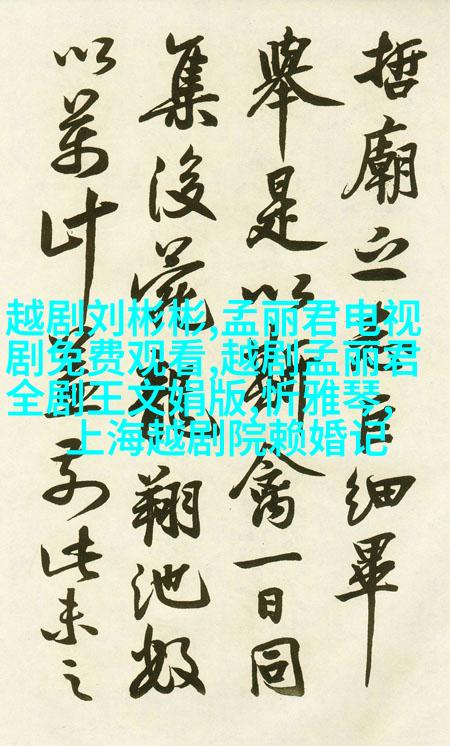 哲廟之細畢
舉是以禽一日同
集後苑翔池
以萬計此未之
越剧刘彬彬,孟丽君电视
剧免费观看,越剧孟丽君
全剧王文娟版,忻雅琴,
上海越剧院赖婚记